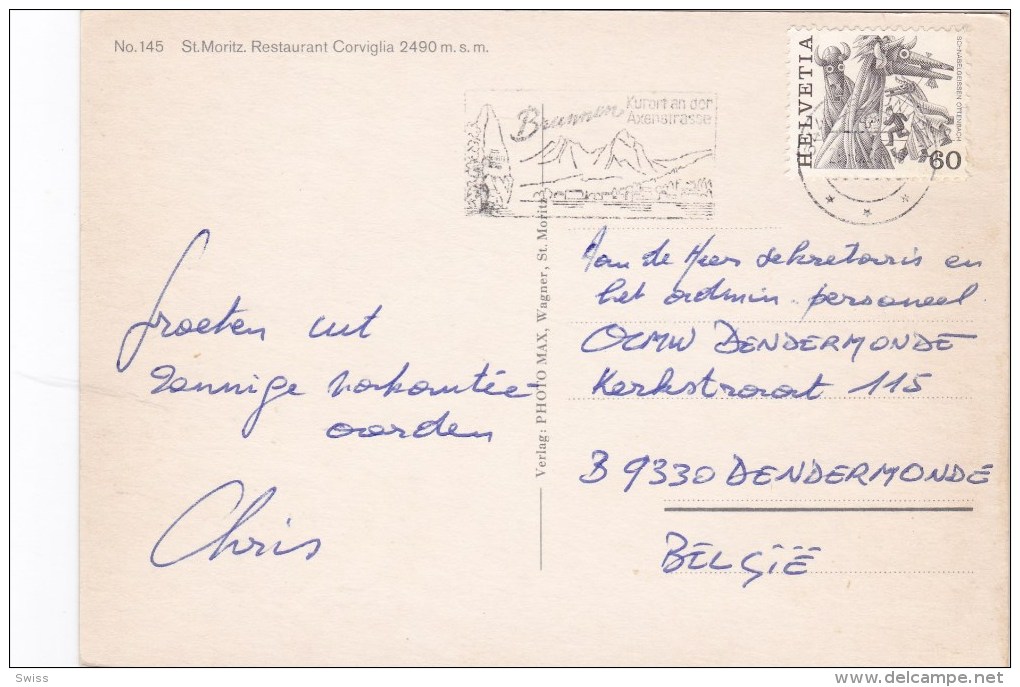 No. 145 St. Moritz. Restaurant Corviglia 2490 m. s. m.
HELVETIA
SCHNABELGEISSEN OTTENBACH
60
Brunnen
Kurort an der
Axenstrasse
Groeten uit
zonnige vakantie
oorden
Chris
Verlag: PHOTO MAX, Wagner, St. Moritz
Aan de Heer sekretaris en
het admin. personeel
OCMW DENDERMONDE
Kerkstraat 115
B 9330 DENDERMONDE
BELGIË
Swiss
www.delcampe.net